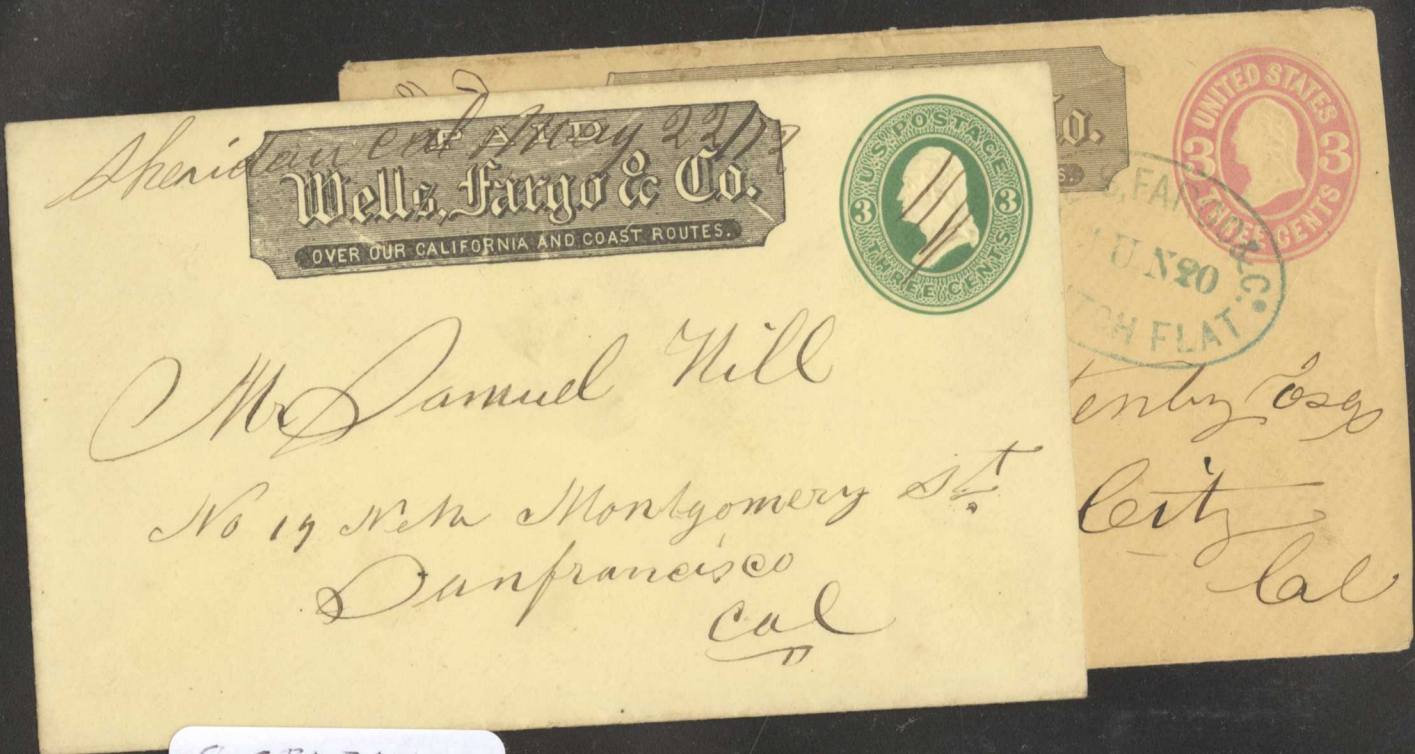 Sheridan Cal May 22/72
PAID
Wells, Fargo & Co.
OVER OUR CALIFORNIA AND COAST ROUTES.
U.S. POSTAGE
3 3
THREE CENTS
Mr Samuel Hill
No 19 New Montgomery St.
Sanfrancisco
Cal
o.
S.
UNITED STATES
3 3
THREE CENTS
S, FARGO & Co.
UN 20
TCH FLAT
enby Esq
City
Cal